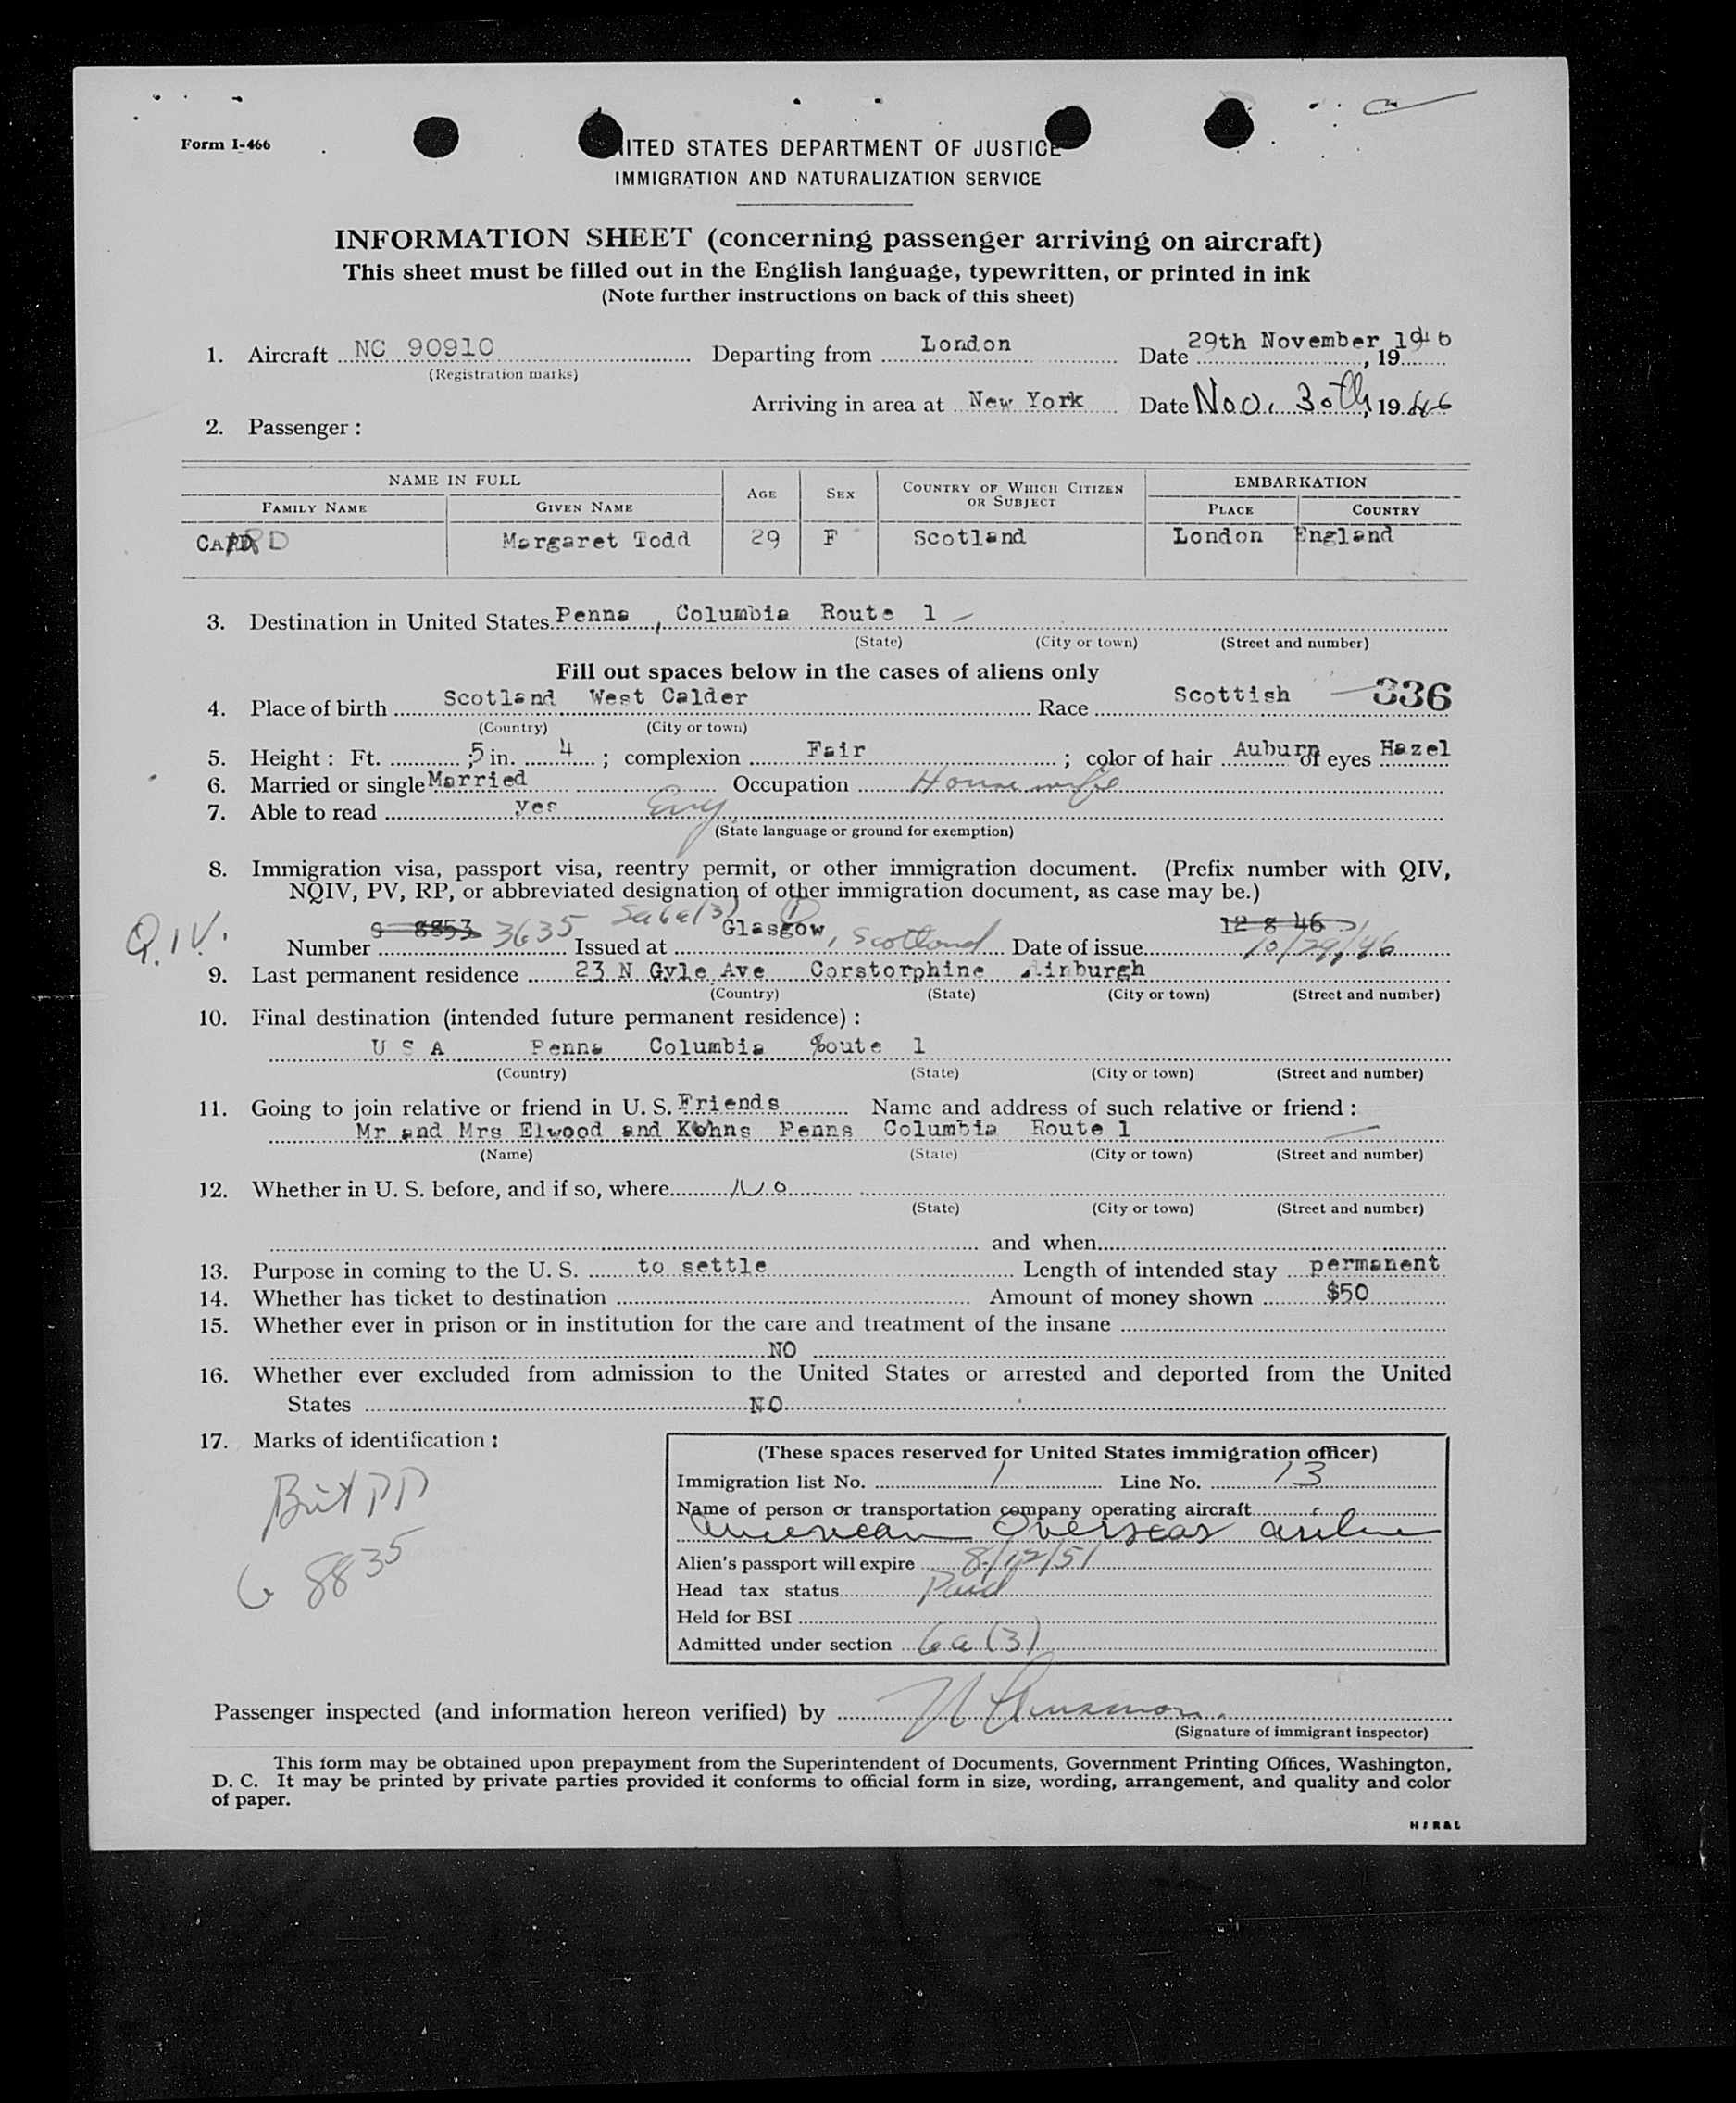 Form I-466
UNITED STATES DEPARTMENT OF JUSTICE
IMMIGRATION AND NATURALIZATION SERVICE
INFORMATION SHEET (concerning passenger arriving on aircraft)
This sheet must be filled out in the English language, typewritten, or printed in ink
(Note further instructions on back of this sheet)
1. Aircraft NC 90910 Departing from London Date 29th November 1946, 19
(Registration marks)
Arriving in area at New York Date Nov. 30th, 1946
2. Passenger :
NAME IN FULL AGE SEX COUNTRY OF WHICH CITIZEN OR SUBJECT EMBARKATION
FAMILY NAME GIVEN NAME PLACE COUNTRY
CARD Margaret Todd 29 F Scotland London England
3. Destination in United States Penna, Columbia Route 1
(State) (City or town) (Street and number)
Fill out spaces below in the cases of aliens only
4. Place of birth Scotland West Calder Race Scottish 336
(Country) (City or town)
5. Height : Ft. 5 in. 4 ; complexion Fair ; color of hair Auburn of eyes Hazel
6. Married or single Married Occupation Housewife
7. Able to read yes Eng
(State language or ground for exemption)
8. Immigration visa, passport visa, reentry permit, or other immigration document. (Prefix number with QIV,
NQIV, PV, RP, or abbreviated designation of other immigration document, as case may be.)
Q.I.V. Number 8853 3635 Issued at Glasgow, Scotland Date of issue 12 8 46 10/29/46
9. Last permanent residence 23 N Gyle Ave Corstorphine
(Country) (State) (City or town) (Street and number)
10. Final destination (intended future permanent residence) :
U S A Penna Columbia Route 1
(Country) (State) (City or town) (Street and number)
11. Going to join relative or friend in U. S. Friends Name and address of such relative or friend :
Mr and Mrs Elwood and Kohns Penns Columbia Route 1
(Name) (State) (City or town) (Street and number)
12. Whether in U. S. before, and if so, where No
(State) (City or town) (Street and number)
and when
13. Purpose in coming to the U. S. to settle Length of intended stay permanent
14. Whether has ticket to destination Amount of money shown $50
15. Whether ever in prison or in institution for the care and treatment of the insane
NO
16. Whether ever excluded from admission to the United States or arrested and deported from the United
States NO
17. Marks of identification :
Brit PP
G 8835
(These spaces reserved for United States immigration officer)
Immigration list No. 1 Line No. 13
Name of person or transportation company operating aircraft
American Overseas Airline
Alien's passport will expire 8/12/51
Head tax status Paid
Held for BSI
Admitted under section 6a(3)
Passenger inspected (and information hereon verified) by
(Signature of immigrant inspector)
This form may be obtained upon prepayment from the Superintendent of Documents, Government Printing Offices, Washington,
D. C. It may be printed by private parties provided it conforms to official form in size, wording, arrangement, and quality and color
of paper.